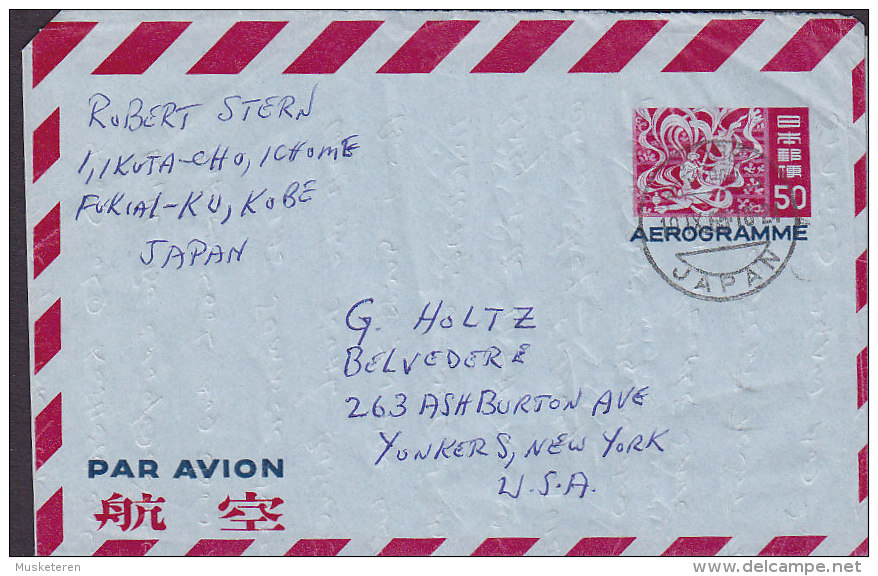 ROBERT STERN
1, IKUTA-CHO, 1CHOME
FUKIAI-KU, KOBE
JAPAN
日本郵便
50
AEROGRAMME
10 IX
JAPAN
G. HOLTZ
BELVEDERE
263 ASHBURTON AVE
YONKERS, NEW YORK
U.S.A.
PAR AVION
航空
Musketeren
delcampe.net